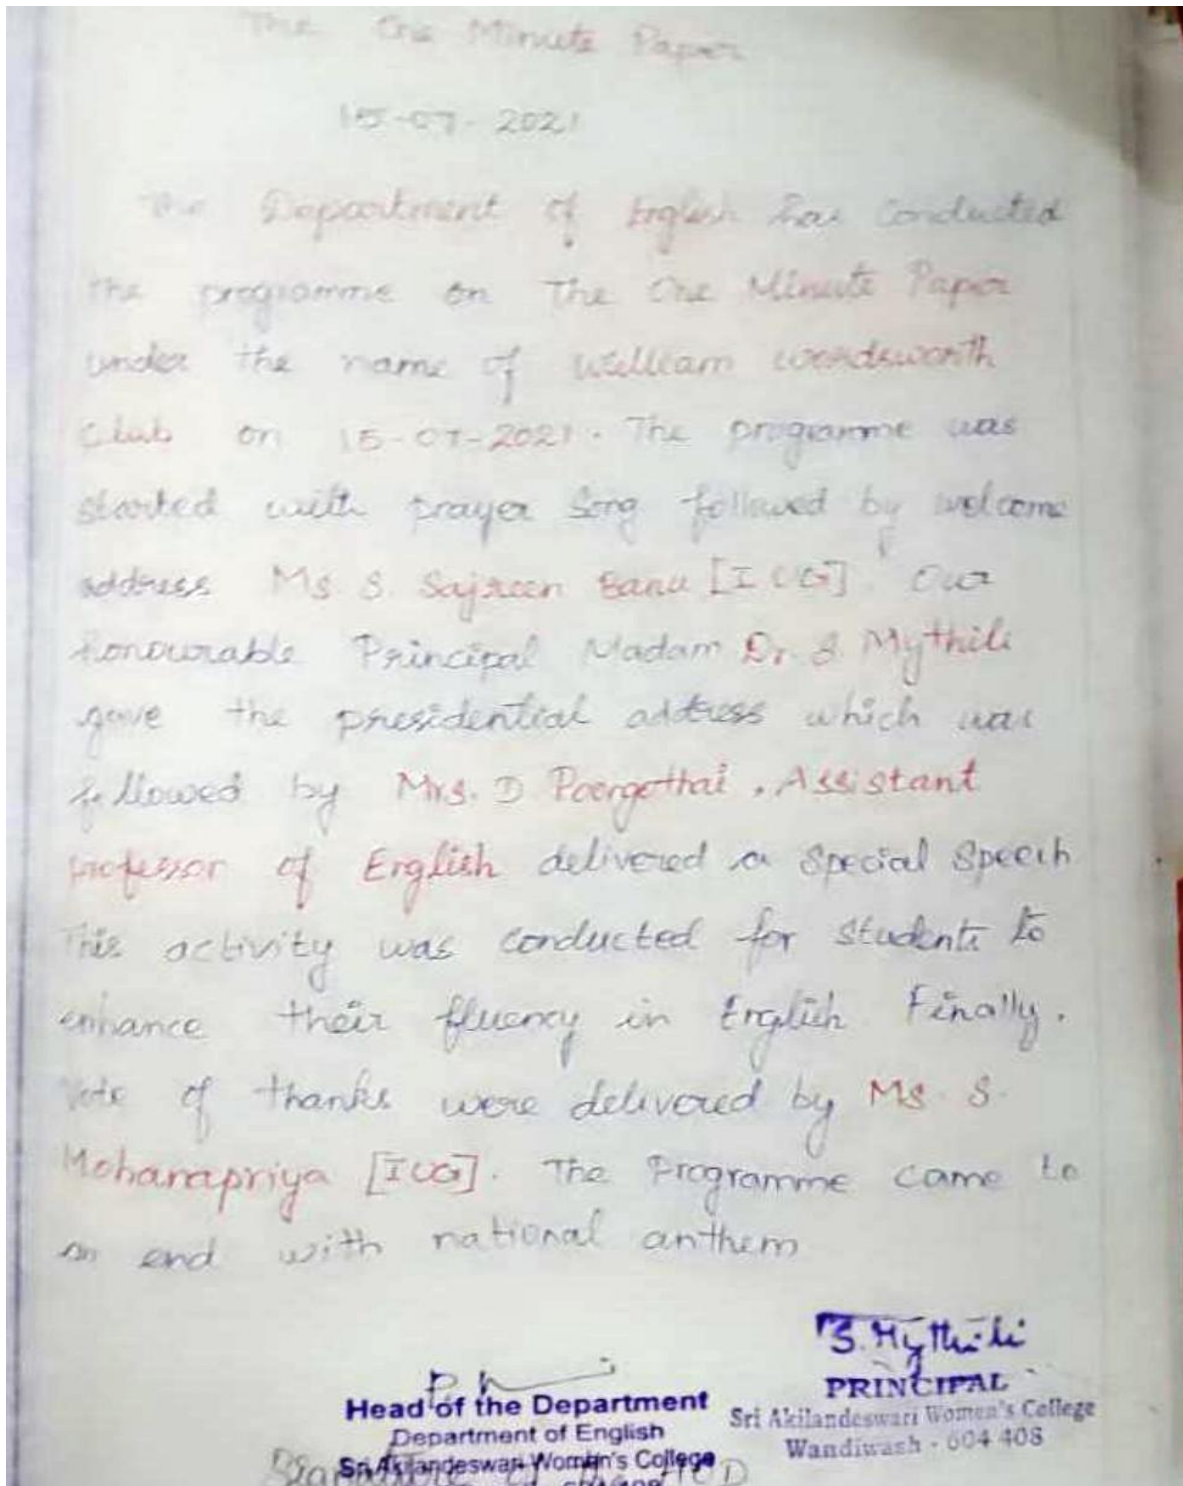 The One Minute Paper
15-07-2021
The Department of English has conducted
the programme on The One Minute Paper
under the name of William Wordsworth
Club on 15-07-2021. The programme was
started with prayer Song followed by welcome
address Ms S. Sajreen Banu [I UG]. Our
honourable Principal Madam Dr. S. Mythili
gave the presidential address which was
followed by Mrs. D Poongothai, Assistant
professor of English delivered a Special Speech
This activity was conducted for students to
enhance their fluency in English Finally,
Vote of thanks were delivered by Ms. S.
Mohanapriya [I UG]. The Programme came to
an end with national anthem
S. Mythili
PRINCIPAL
Sri Akilandeswari Women's College
Wandiwash - 604 408
Head of the Department
Department of English
Sri Akilandeswari Women's College
Signature of the HOD